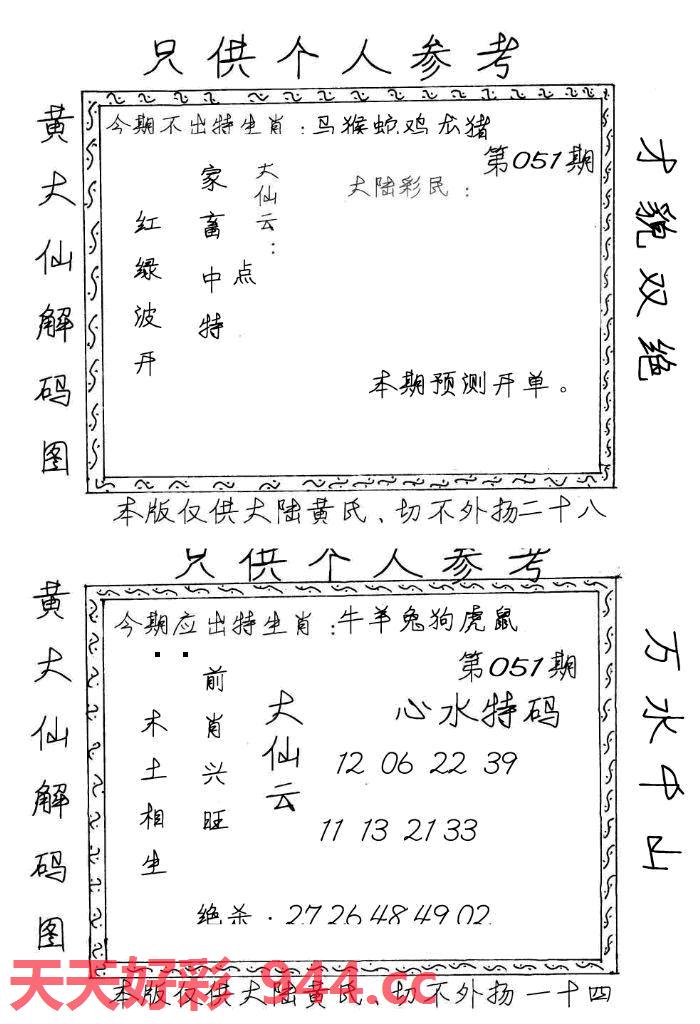 只供个人参考
黄大仙解码图
今期不出特生肖:马猴蛇鸡龙猪
第051期
大仙云:
家畜中特
点
红绿波开
大陆彩民:
本期预测开单。
才貌双绝
本版仅供大陆黄氏、切不外扬二十八
只供个人参考
黄大仙解码图
今期应出特生肖:牛羊兔狗虎鼠
第051期
大仙云
前肖兴旺
木土相生
心水特码
12 06 22 39
11 13 21 33
绝杀·27 26 48 49 02
万水千山
天天好彩 944.cc
本版仅供大陆黄氏、切不外扬一十四